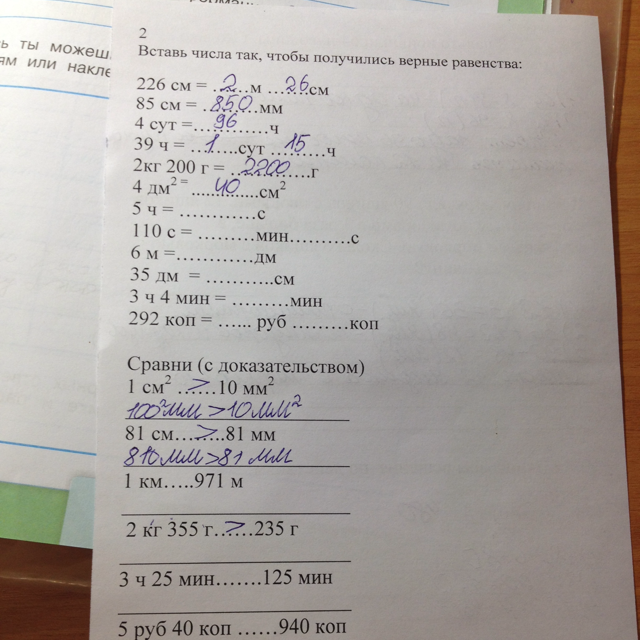 ь ты можеш
ям или накле
2
Вставь числа так, чтобы получились верные равенства:
226 см = ..2..м ...26см
85 см = .850.мм
4 сут =...96........ч
39 ч = ..1....сут ..15......ч
2кг 200 г = ..2200........г
4 дм² = .....40.....см²
5 ч = ............с
110 с = .........мин.........с
6 м =............дм
35 дм = ..........см
3 ч 4 мин = .........мин
292 коп = ...... руб .........коп
Сравни (с доказательством)
1 см² ..>....10 мм²
100²мм > 10 мм²
81 см...>..81 мм
810 мм > 81 мм
1 км.....971 м
2 кг 355 г..>...235 г
3 ч 25 мин.......125 мин
5 руб 40 коп ......940 коп